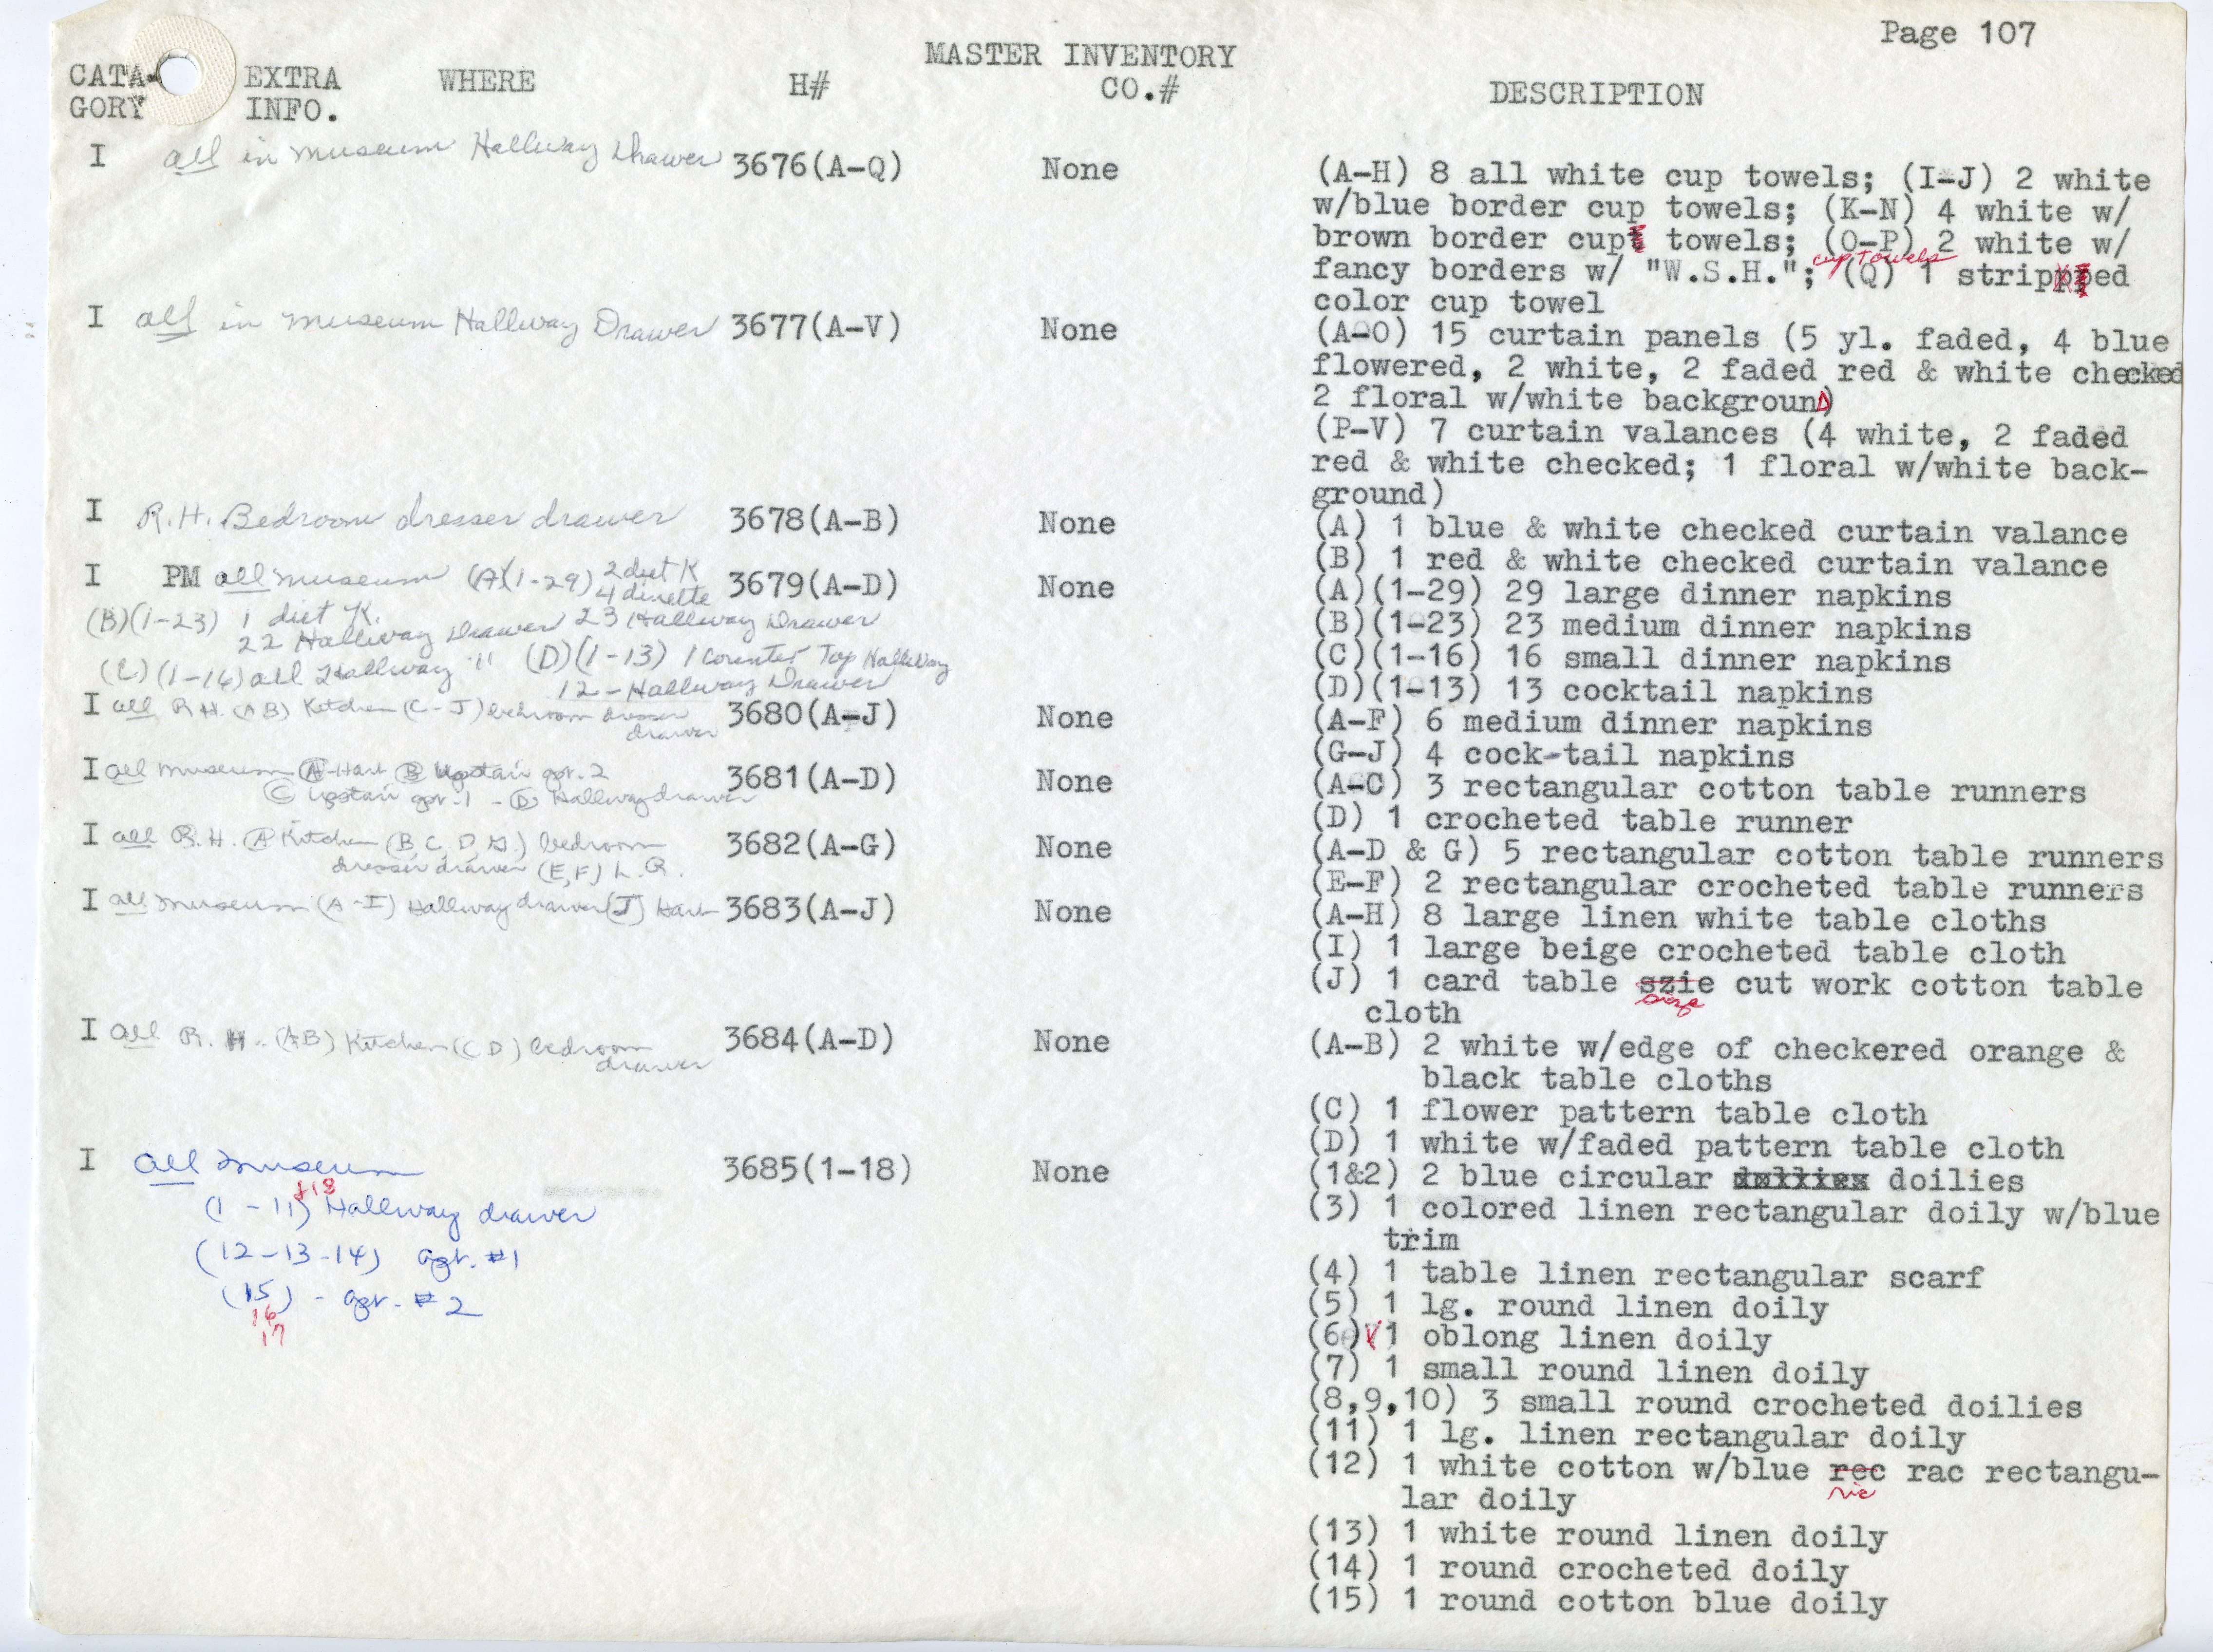 Page 107
MASTER INVENTORY
CATA- EXTRA WHERE H# CO.# DESCRIPTION
GORY INFO.
I all in museum Hallway Drawer 3676(A-Q) None (A-H) 8 all white cup towels; (I-J) 2 white
w/blue border cup towels; (K-N) 4 white w/
brown border cup towels; (O-P) 2 white w/
cup towels
fancy borders w/ "W.S.H."; (Q) 1 stripped
color cup towel
I all in museum Hallway Drawer 3677(A-V) None (A-O) 15 curtain panels (5 yl. faded, 4 blue
flowered, 2 white, 2 faded red & white checked
2 floral w/white background)
(P-V) 7 curtain valances (4 white, 2 faded
red & white checked; 1 floral w/white back-
ground)
I R.H. Bedroom dresser drawer 3678(A-B) None (A) 1 blue & white checked curtain valance
(B) 1 red & white checked curtain valance
I PM all museum (A)(1-29) 2 diet K 3679(A-D) None (A)(1-29) 29 large dinner napkins
4 dinette
(B)(1-23) 1 diet K. 23 Hallway Drawer (B)(1-23) 23 medium dinner napkins
22 Hallway Drawer
(C)(1-16) all Hallway " (D)(1-13) 1 Counter Top Hallway (C)(1-16) 16 small dinner napkins
12 - Hallway Drawer (D)(1-13) 13 cocktail napkins
I all R.H. (AB) Kitchen (C-J) bedroom dresser 3680(A-J) None (A-F) 6 medium dinner napkins
drawer (G-J) 4 cock-tail napkins
I all museum (A) Hart (B) Upstair apt. 2 3681(A-D) None (A-C) 3 rectangular cotton table runners
(C) upstair apt. 1 - (D) Hallway drawer (D) 1 crocheted table runner
I all R.H. (A) Kitchen (B C D G.) bedroom 3682(A-G) None (A-D & G) 5 rectangular cotton table runners
dresser drawer (E,F) L.R. (E-F) 2 rectangular crocheted table runners
I all museum (A-I) Hallway drawer (J) Hart 3683(A-J) None (A-H) 8 large linen white table cloths
(I) 1 large beige crocheted table cloth
(J) 1 card table szie cut work cotton table
size
cloth
I all R. H. (AB) Kitchen (C D) bedroom 3684(A-D) None (A-B) 2 white w/edge of checkered orange &
drawer black table cloths
(C) 1 flower pattern table cloth
(D) 1 white w/faded pattern table cloth
I all museum 3685(1-18) None (1&2) 2 blue circular doilies
(1-11) +18 Hallway drawer (3) 1 colored linen rectangular doily w/blue
trim
(12-13-14) apt. #1 (4) 1 table linen rectangular scarf
(15) - apt. #2 (5) 1 lg. round linen doily
16
17
(6) 1 oblong linen doily
(7) 1 small round linen doily
(8,9,10) 3 small round crocheted doilies
(11) 1 lg. linen rectangular doily
(12) 1 white cotton w/blue rec rac rectangu-
ric
lar doily
(13) 1 white round linen doily
(14) 1 round crocheted doily
(15) 1 round cotton blue doily